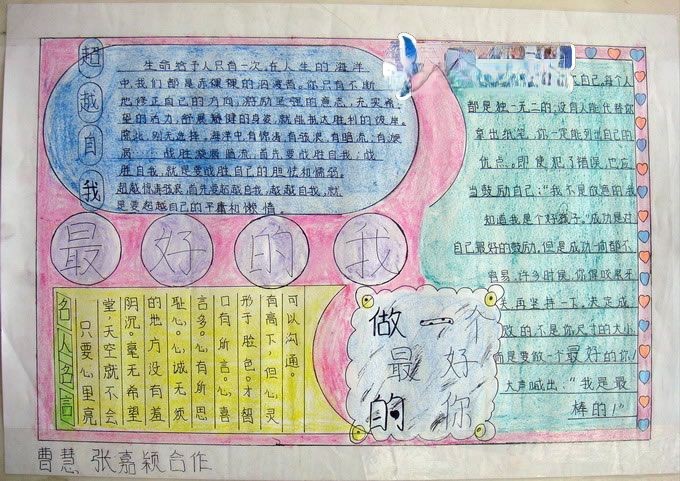 超越自我
生命给予人只有一次,在人生的海洋
中,我们都是赤裸裸的泅渡者。你只有不断
地修正自己的方向,磨励坚强的意志,充实希
望的活力,舒展矫健的身姿,就能抵达胜利的彼岸。
除此,别无选择。海洋中有惊涛,有骇浪,有暗流,有漩
涡…… 战胜漩涡暗流,首先要战胜自我;战
胜自我,就是要战胜自己的胆怯和懦弱。
超越惊涛骇浪,首先要超越自我,超越自我,就
是要超越自己的平庸和懒惰。
最好的我
名人名言
只要心里亮
堂,天空就不会
阴沉。毫无希望
的地方没有羞
耻心。心诚无须
言多。心有所思
口有所言。心喜
形于脸色。才智
有高下,但心灵
可以沟通。
做一个
最好
的你
自己,每个人
都是独一无二的,没有人能代替你
拿出纸笔,你一定能列出自己的
优点。即使犯了错误,也应
当鼓励自己:"我不是故意的,我
知道我是个好孩子。"成功是对
自己最好的鼓励,但是成功一向都不
容易,许多时候,你得咬紧牙
关,再坚持一下。决定成
败的不是你尺寸的大小
而是要做一个最好的你!
大声喊出:"我是最
棒的!"
曹慧 张嘉颖合作